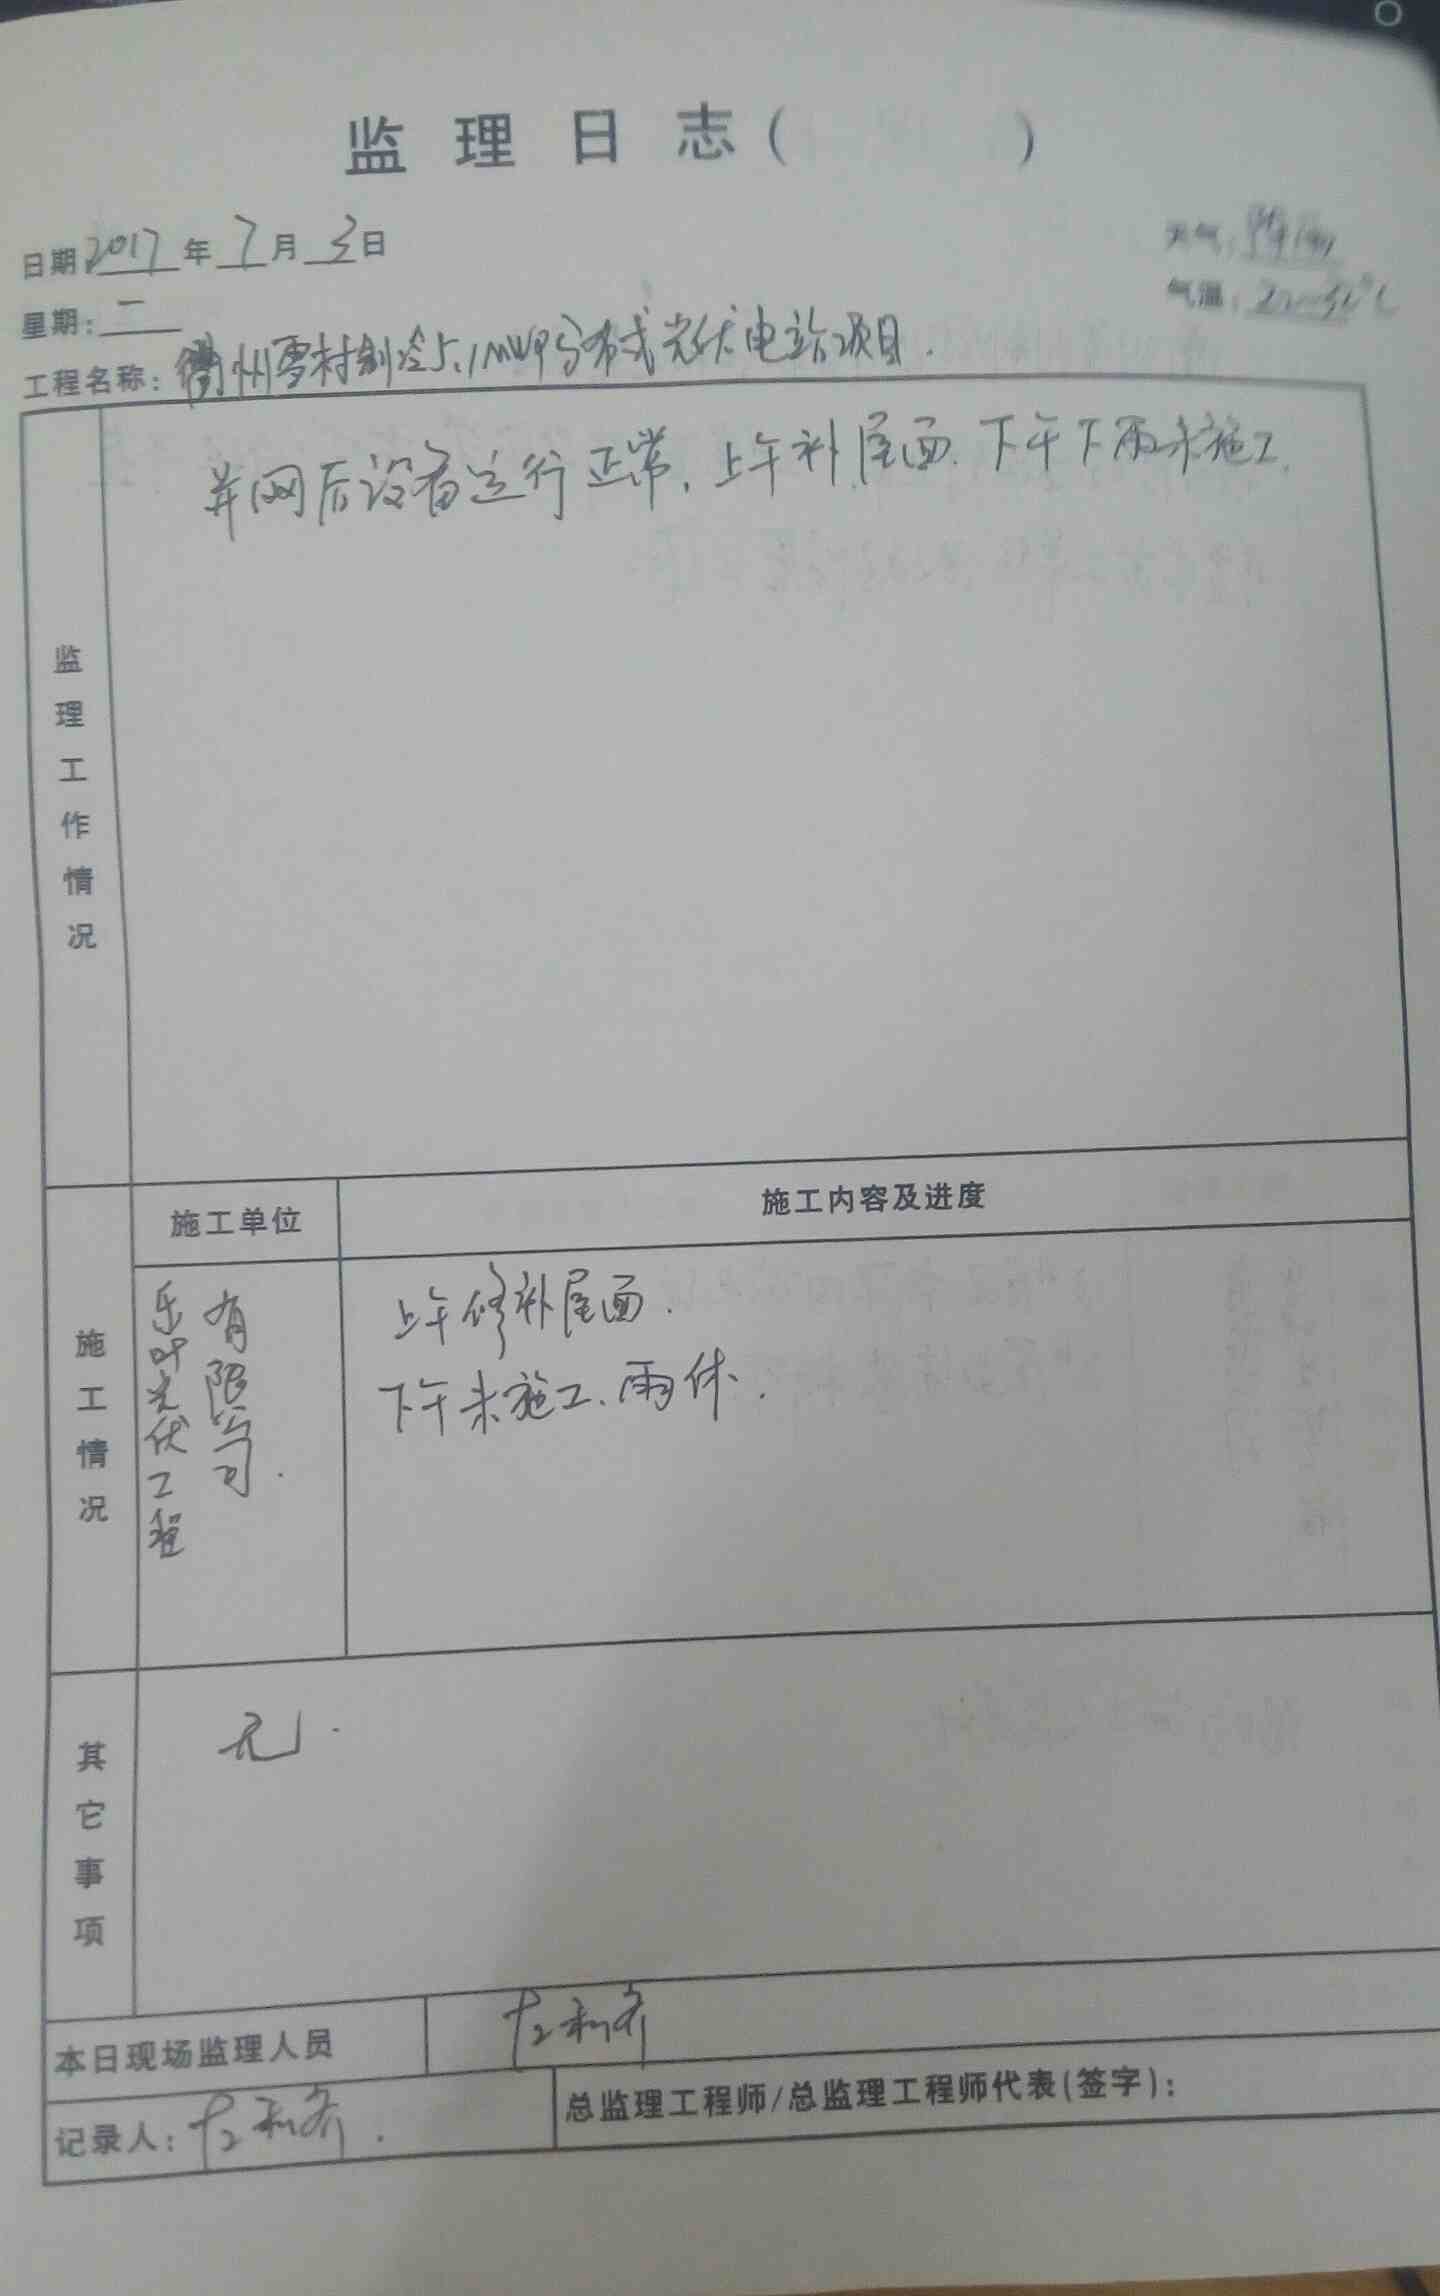 监理日志(    )
日期 2017 年 7 月 3 日
天气: 阵雨
星期: 一
气温:
工程名称: 衢州雪村制冷5.1MWP分布式光伏电站项目.
监理工作情况
并网后设备运行正常. 上午补屋面. 下午下雨未施工.
施工情况
施工单位
施工内容及进度
乐叶光伏工程
有限公司.
上午修补屋面.
下午未施工、雨休.
其它事项
无.
本日现场监理人员
记录人:
总监理工程师/总监理工程师代表(签字):